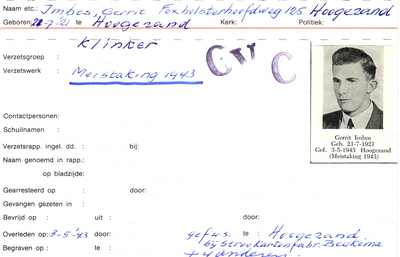 Naam etc.: Imbos, Gerrit Foxholsterhoofdweg 125 Hoogezand
Geboren: 21-7-'21 te Hoogezand Kerk: Politiek:
Klinker
Verzetsgroep :
Verzetswerk : Meistaking 1943
GVC
Contactpersonen:
Schuilnamen :
Verzetsrapp. ingel. dd. : bij:
Naam genoemd in rapp.:
op bladzijde:
Gearresteerd op : door:
Gevangen gezeten in :
Bevrijd op : uit : door:
Overleden op : 3-5-'43 door: gef.w.s. te : Hoogezand
Begraven op : te : bij Strookartonfabr. Beukema
+ 4 anderen.
Gerrit Imbos
Geb. 21-7-1921
Gef. 3-5-1943 Hoogezand
(Meistaking 1943)